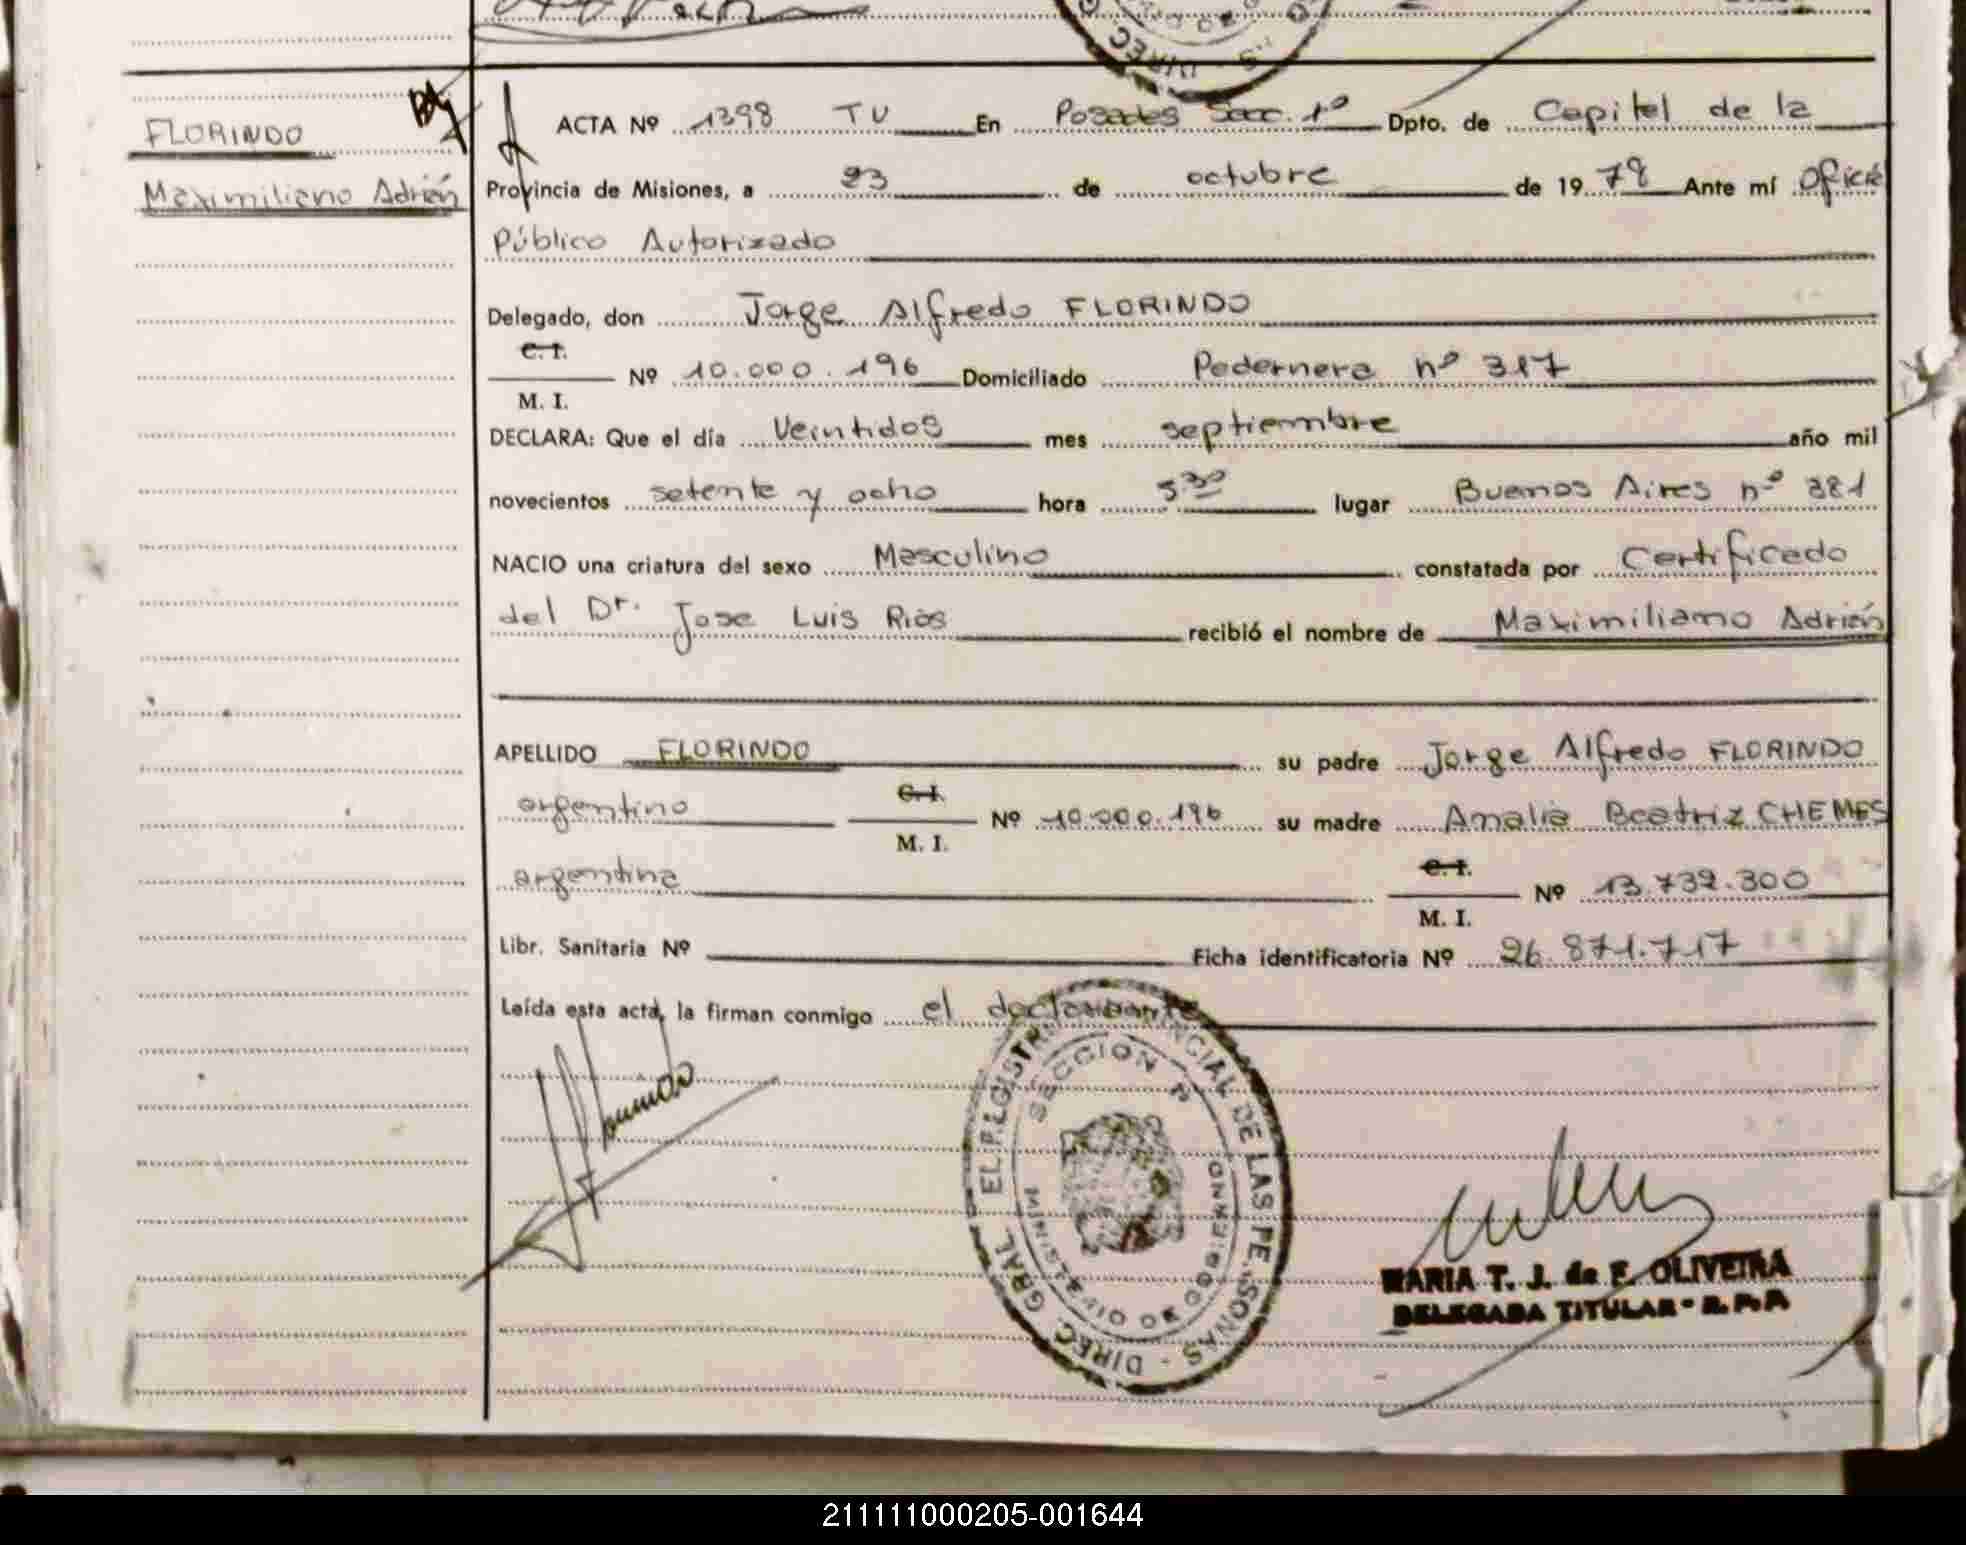 FLORINDO
Maximiliano Adrián
ACTA Nº 1398 TU En Posadas Secc. 1º Dpto. de Capital de la
Provincia de Misiones, a 23 de octubre de 1978 Ante mí Oficial
Público Autorizado
Delegado, don Jorge Alfredo FLORINDO
C. I.
Nº 10.000.196 Domiciliado Pedernera nº 317
M. I.
DECLARA: Que el día Veintidos mes septiembre año mil
novecientos setenta y ocho hora 5³⁰ lugar Buenos Aires nº 381
NACIO una criatura del sexo Masculino constatada por Certificado
del Dr. Jose Luis Rios recibió el nombre de Maximiliano Adrián
APELLIDO FLORINDO su padre Jorge Alfredo FLORINDO
argentino C. I. Nº 10.000.196 su madre Amalia Beatriz CHEMES
M. I.
argentina C. I. Nº 13.732.300
M. I.
Libr. Sanitaria Nº Ficha identificatoria Nº 26.871.717
Leída esta acta, la firman conmigo el declarante
SECCION
DIREC. GRAL. DE LAS PERSONAS
MARIA T. J. de F. OLIVEIRA
DELEGADA TITULAR - R.P.P.
211111000205-001644